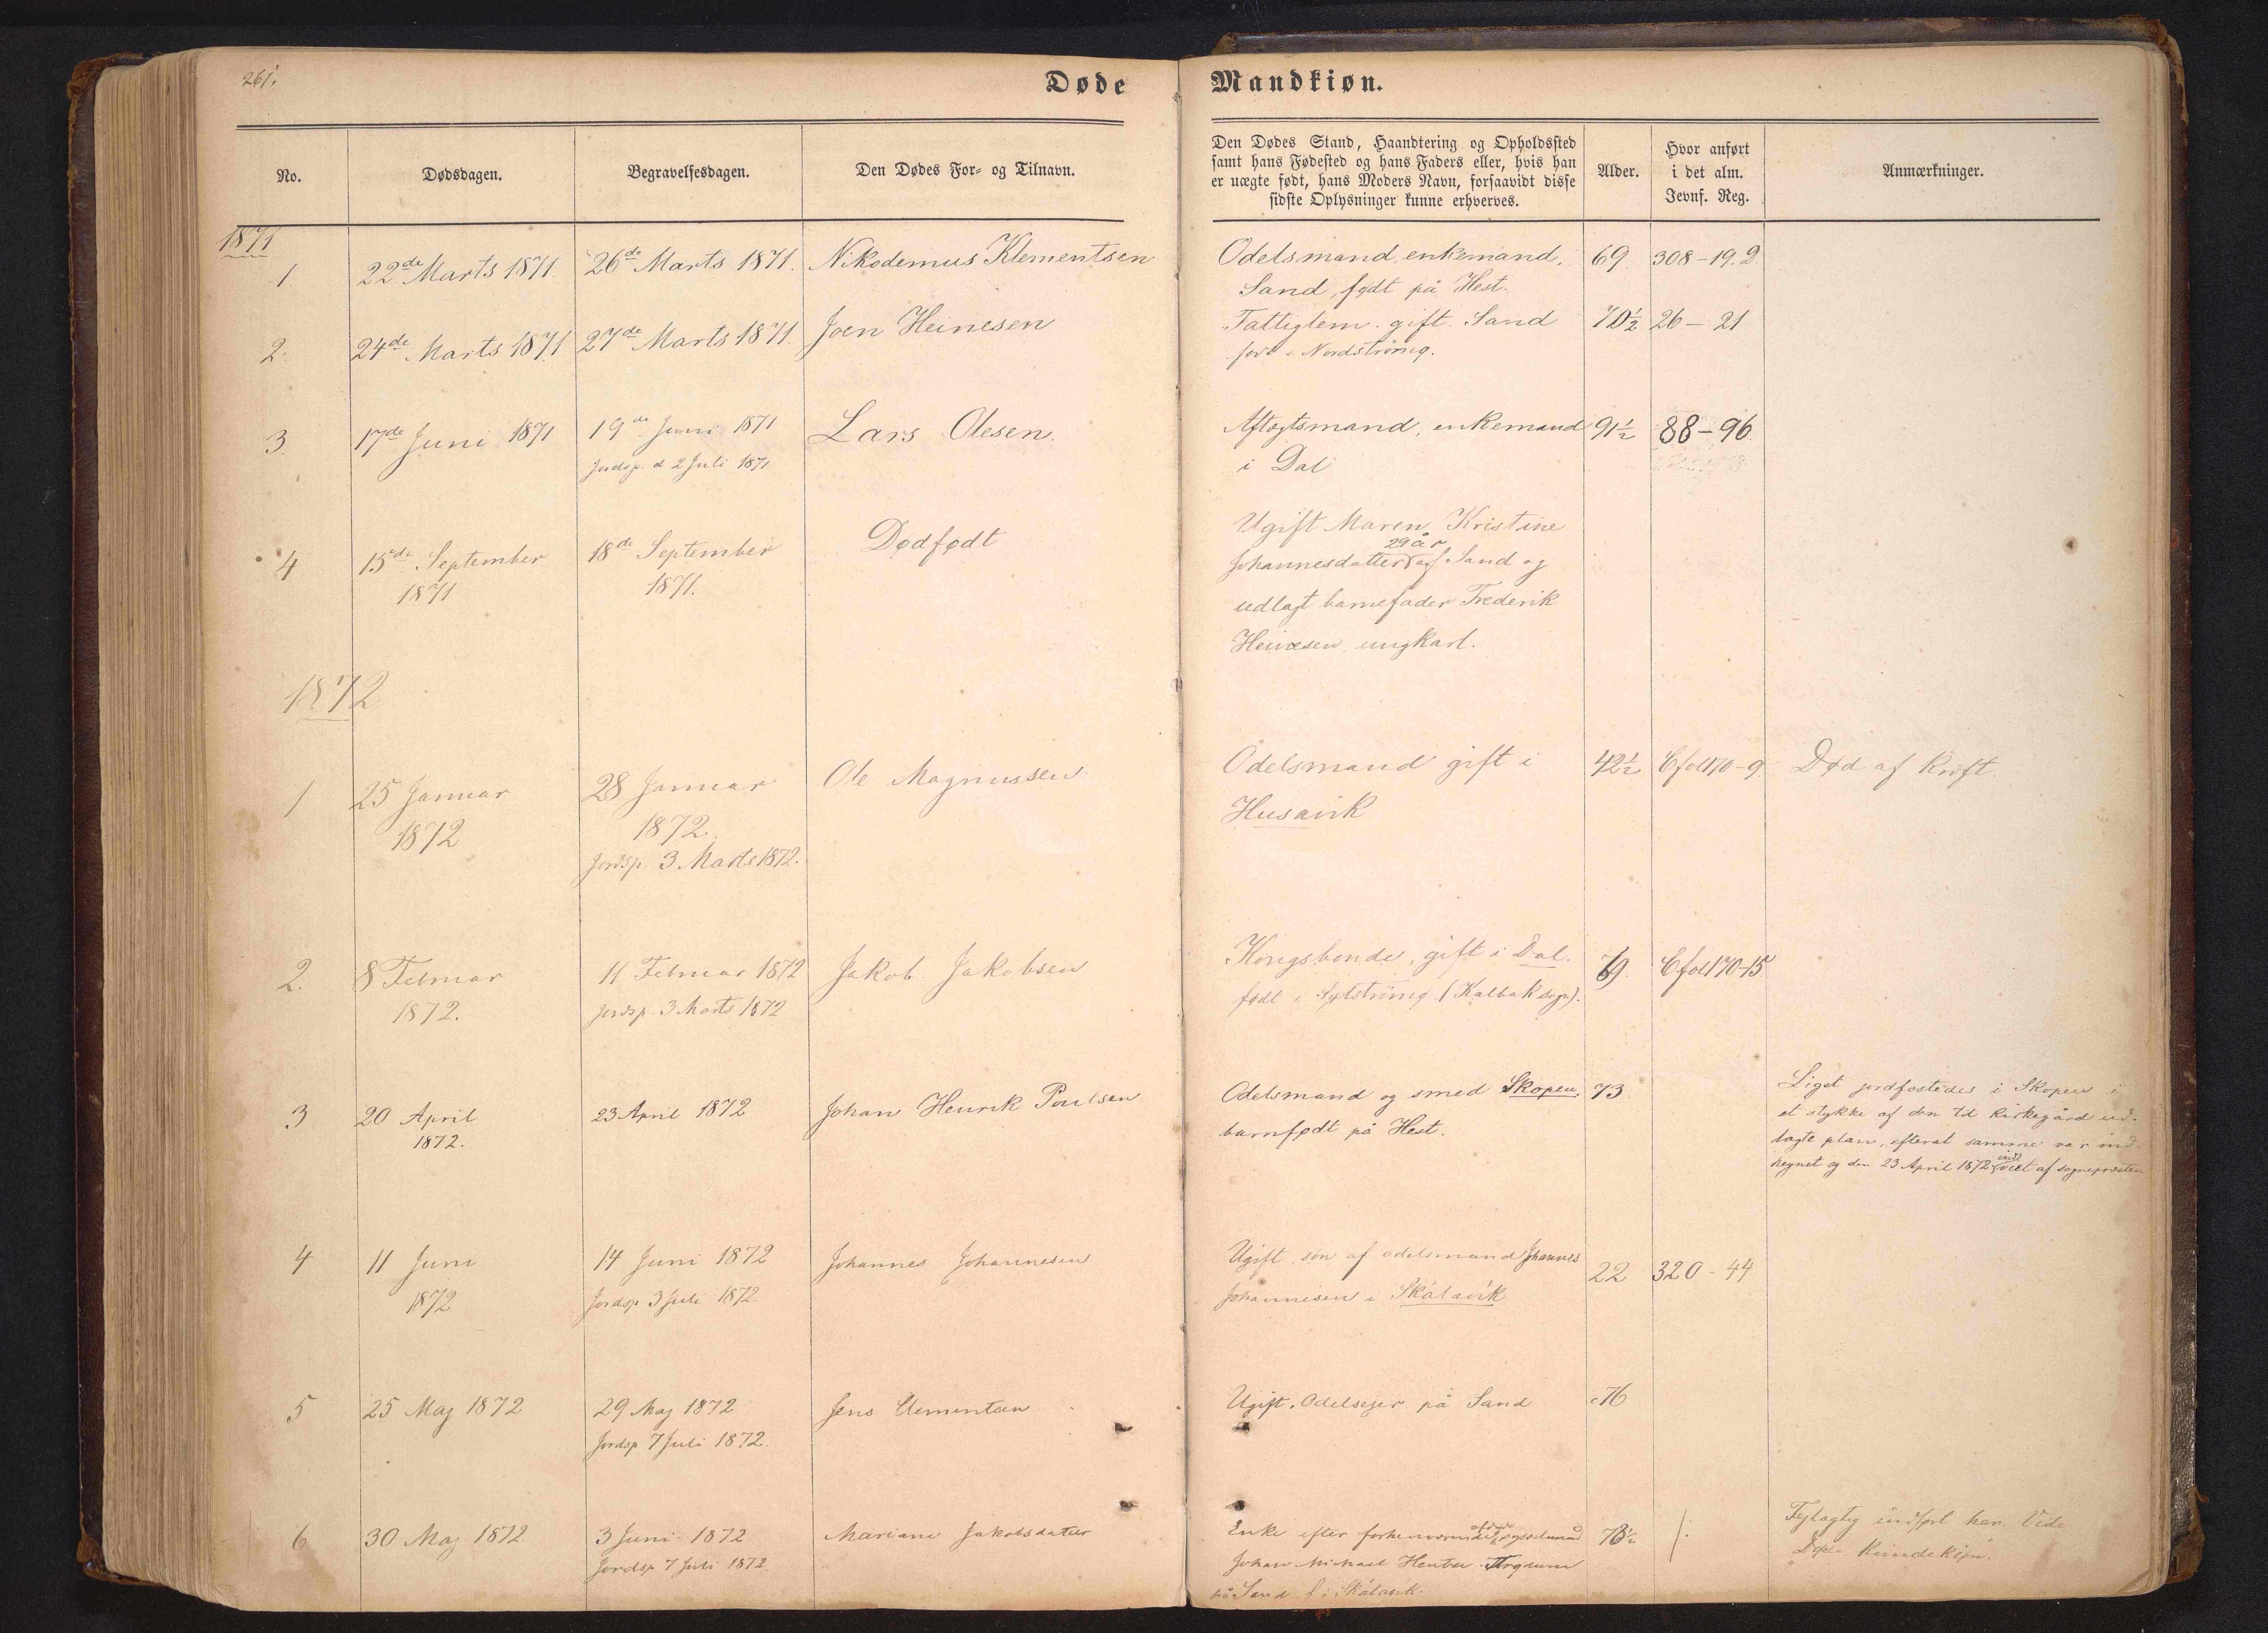 261.
Døde Mandkiøn.
No.
Dødsdagen.
Begravelsesdagen.
Den Dødes For- og Tilnavn.
Den Dødes Stand, Haandtering og Opholdssted
samt hans Fødested og hans Faders eller, hvis han
er uægte født, hans Moders Navn, forsaavidt disse
sidste Oplysninger kunne erhverves.
Alder.
Hvor anført
i det alm.
Jevnf. Reg.
Anmærkninger.
1871
1.
22de Marts 1871.
26de Marts 1871.
Nikodemus Klementsen
Odelsmand, enkemand,
Sand, født på Hest.
69.
308-19.
2.
24de Marts 1871
27de Marts 1871.
Joen Heinesen
Fattiglem. gift. Sand
i Nordströmø.
70½
26-21
3.
17de Juni 1871
19de Juni 1871
Jordsp. d 2 Juli 1871
Lars Olesen.
Aftægtsmand, enkemand
i Dal
91½
88-96.
4
15de September
1871
18de September
1871.
Dødfødt
Ugift Maren Kristine
29 år
Johannesdatter af Sand og
udlagt barnefader Frederik
Heinesen, ungkarl.
1872
1
25 Januar
1872
28 Januar
1872.
Jordsp. 3 Marts 1872.
Ole Magnussen
Odelsmand gift i
Husavik
42½
C fol 170-9
Død af Kræft.
2.
8 Februar
1872.
11 Februar 1872
Jordsp. 3 Marts 1872
Jakob Jakobsen
Kongsbonde, gift i Dal.
født i (Kalbak sogn).
69.
C fol 170-15
3
20 April
1872.
23 April 1872
Johan Henrik Poulsen
Odelsmand og smed Skopen,
barnfødt på Hest.
73.
Liget jordfæstedes i Skopen i
et stykke af den til kirkegård ud-
lagte plan, efterat samme var ind-
hegnet og den 23 April 1872 indviet af sognepræsten
4
11 Juni
1872
14 Juni 1872
Jordsp 3 Juli 1872.
Johannes Johannesen
Ugift søn af odelsmand Johannes
Johannesen i Skålavík
22
320-44
5
25 Maj 1872
29 Maj 1872
Jordsp 7 Juli 1872.
Jens Clementsen
Ugift. Odelsejer på Sand
76
6
30 Maj 1872
3 Juni 1872.
Jordsp 7 Juli 1872.
Mariane Jakobsdatter
Enke efter forhenværende
Johan Michael
på Sand f. i Skålavik.
73½
/.
Fejlagtig indført her. Vide
"Døde Kvindekjøn".